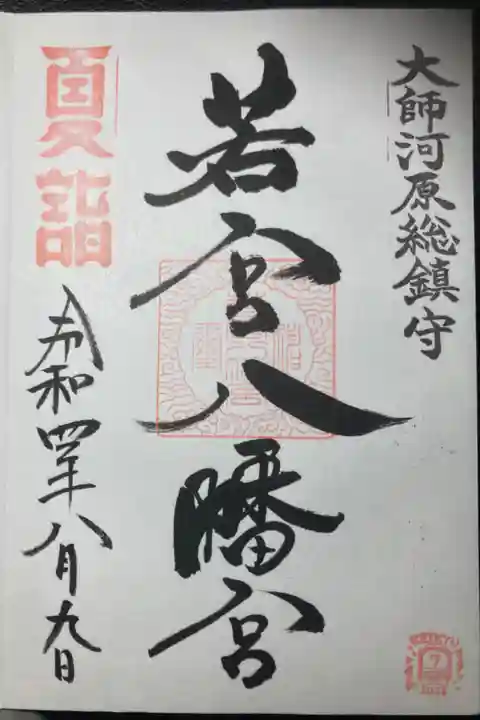 大師河原総鎮守
若宮八幡宮
夏詣
令和四年八月九日
KEIKYU
7
2022